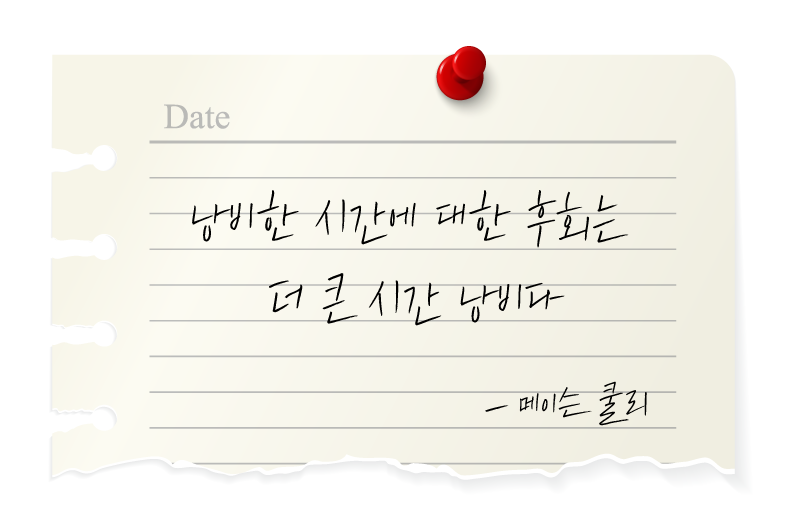 Date
낭비한 시간에 대한 후회는
더 큰 시간 낭비다
- 메이슨 쿨리